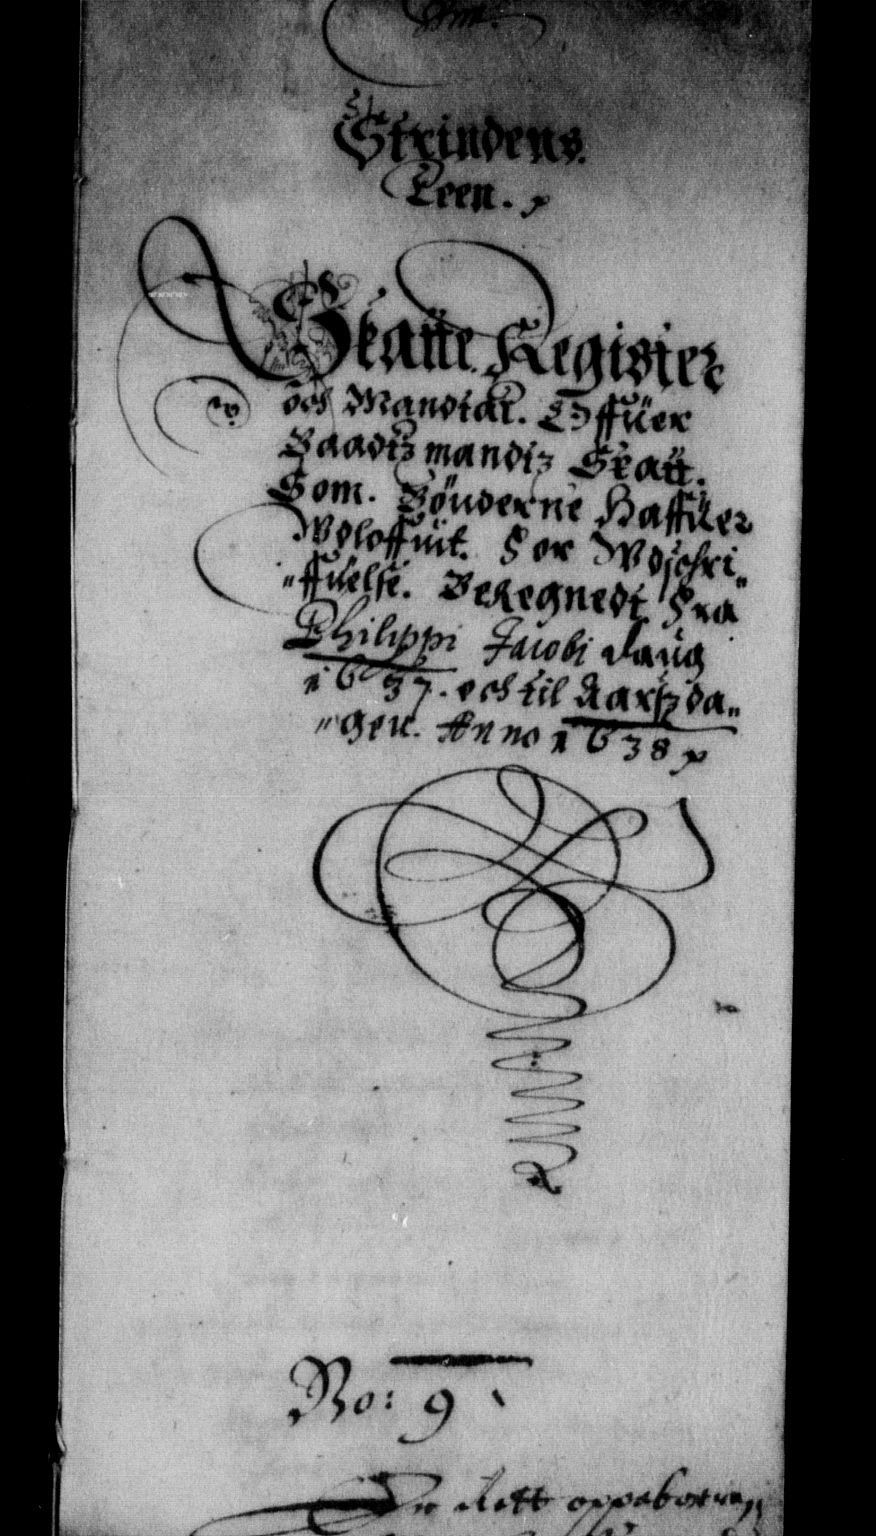 Strindens
Leen.
Skatte Register
och Mandtal. Offuer
Baadtzmandtz Skatt.
Som. Bönderne Haffuer
Wdloffuit. For Wdschri„
„ffuelse. Beregnedt Fra
Philippi Jacobi daug
1637. och til Aartz da„
„gen. Anno 1638
No: 9
dett oppeborren